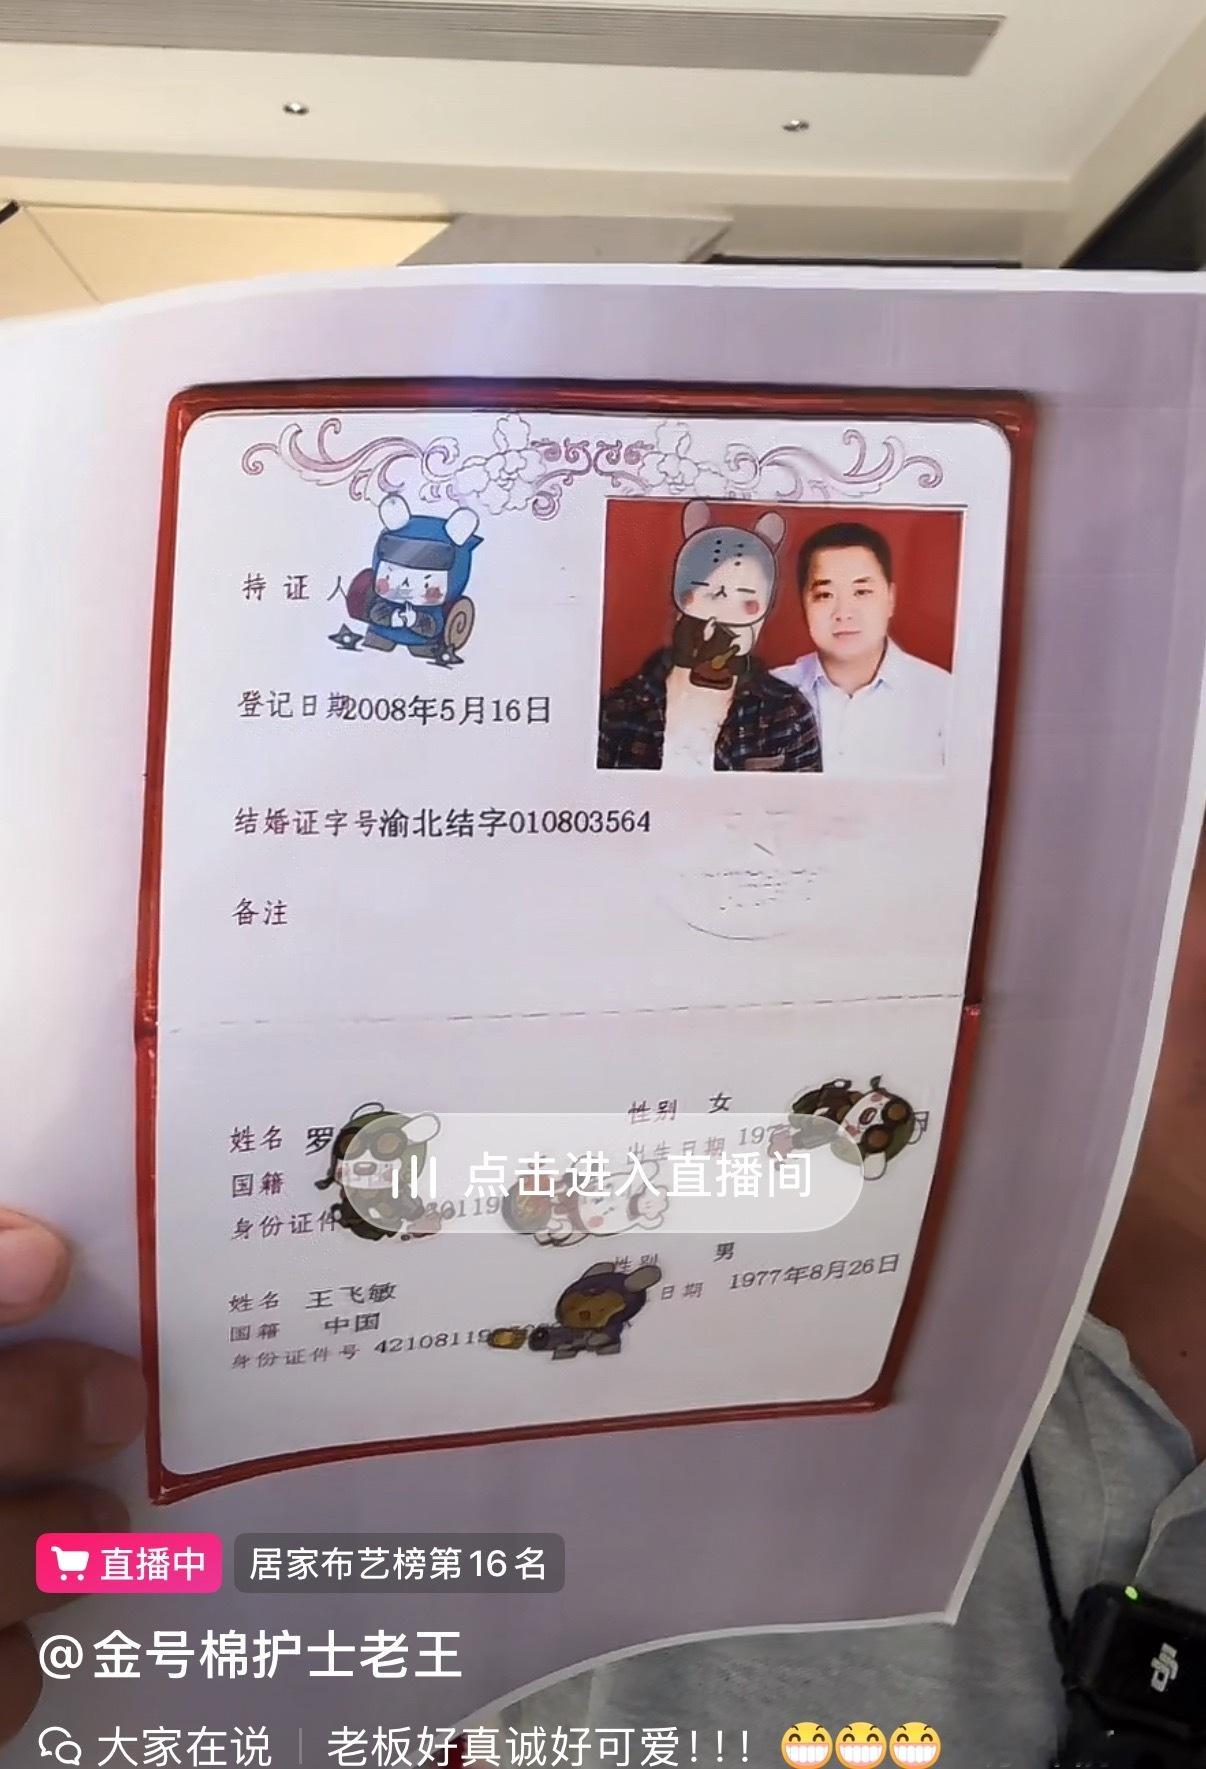 持证人
登记日期2008年5月16日
结婚证字号渝北结字010803564
备注
姓名 罗
性别 女
国籍
出生日期 197
身份证件
点击进入直播间
姓名 王飞敏
性别 男
国籍 中国
日期 1977年8月26日
身份证件号 42108119
直播中
居家布艺榜第16名
@金号棉护士老王
大家在说 | 老板好真诚好可爱!!! 😁😁😁
dji